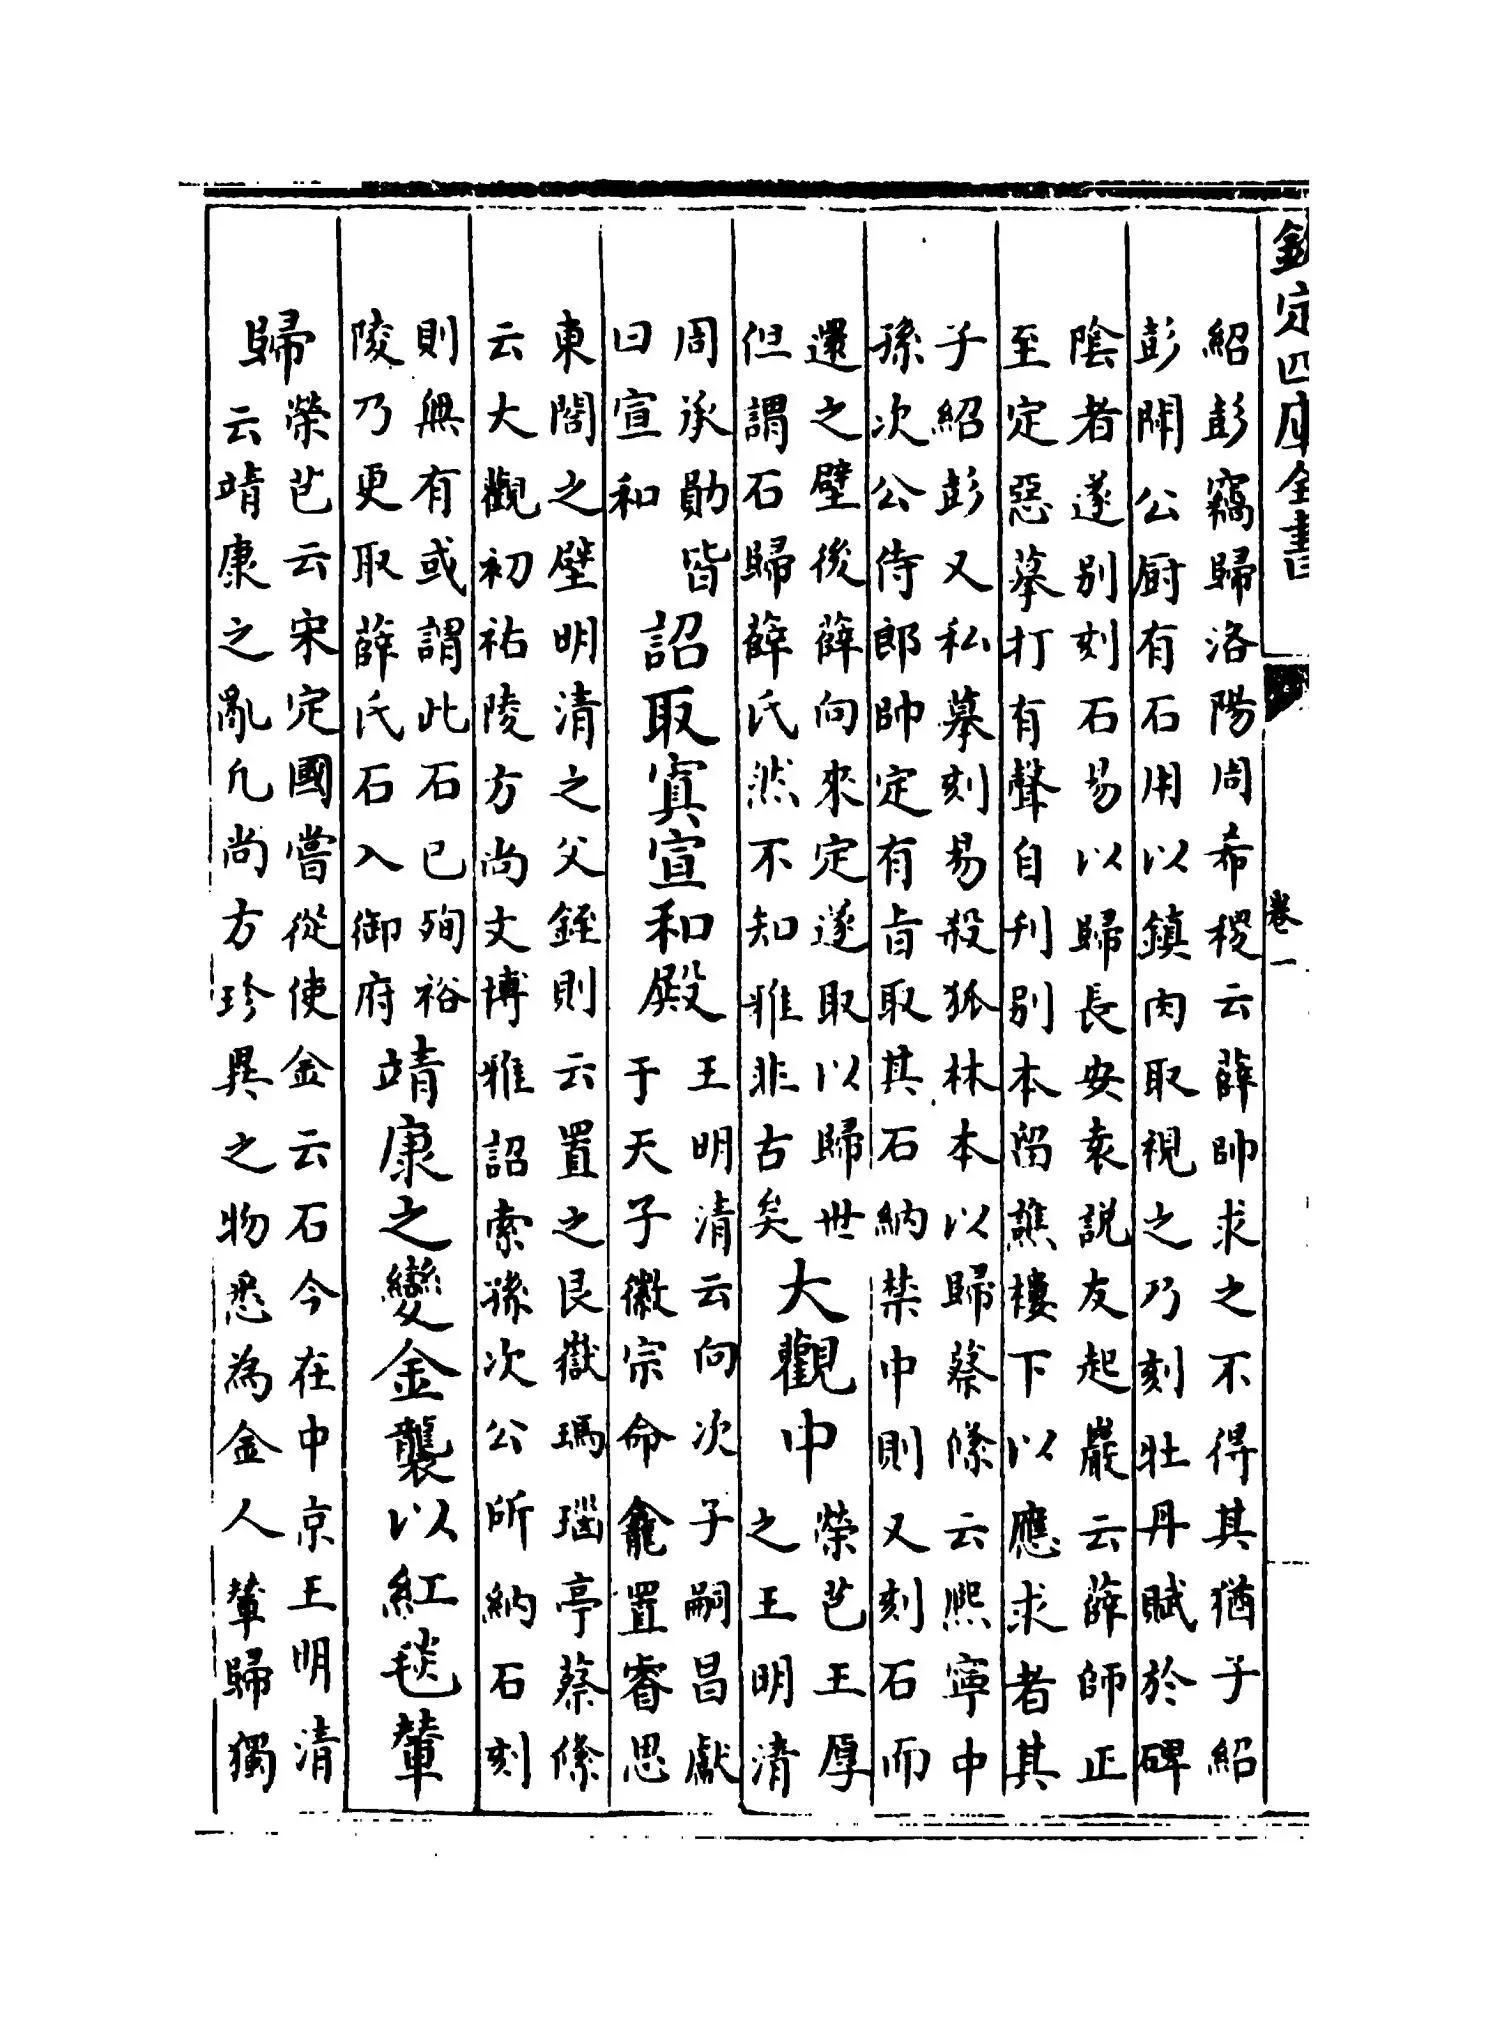 欽定四庫全書
卷一
紹彭竊歸洛陽周希稷云薛帥求之不得其猶子紹
彭聞公厨有石用以鎮肉取視之乃刻牡丹賦於碑
陰者遂別刻石易以歸長安袁説友起巖云薛師正
至定惡摹打有聲自刋別本留譙樓下以應求者其
子紹彭又私摹刻易殺狐林本以歸蔡絛云熙寧中
孫次公侍郎帥定有旨取其石納禁中則又刻石而
還之壁後薛向來定遂取以歸世
但謂石歸薛氏然不知雅非古矣
大觀中
榮芑王厚
之王明清
周承勛皆
曰宣和
詔取寘宣和殿
王明清云向次子嗣昌獻
于天子徽宗命龕置睿思
東閣之壁明清之父銍則云置之艮嶽瑪瑙亭蔡絛
云大觀初祐陵方尚文博雅詔索孫次公所納石刻
則無有或謂此石已殉裕
陵乃更取薛氏石入御府
靖康之變金襲以紅毯輦
歸
榮芑云宋定國嘗從使金云石今在中京王明清
云靖康之亂凡尚方珍異之物悉為金人輦歸獨